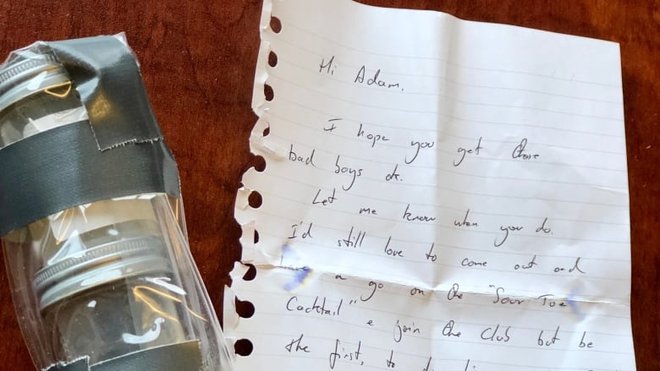 Hi Adam.
I hope you get these
bad boys ok.
Let me know when you do.
I'd still love to come out and
have a go on the "Sour Toe
Cocktail" & join the club but be
the first, to